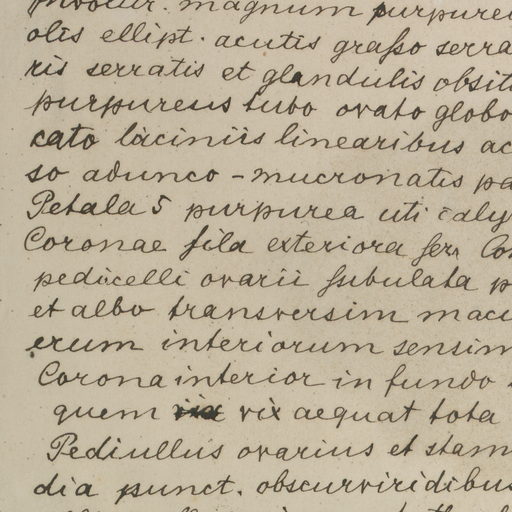 Involucr. magnum purpure
olis ellipt. acutis grafso serra
ris serratis et glandulis obsit
purpureus tubo ovato globo
cato laciniis linearibus ac
so adunco - mucronatis pa
Petala 5 purpurea uti caly
Coronae fila exteriora fer Co
pedicelli ovarii fubulata p
et albo transversim macu
erum interiorum sensim
Corona interior in fundo
quem vix aequat tota
Pediullus ovarius et stam
dia punct. obscurviridibus